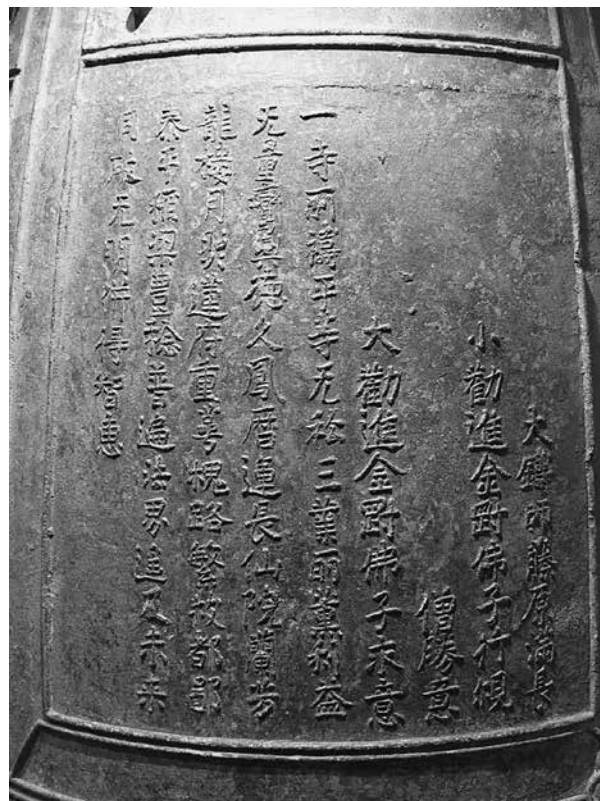 大鑄師藤原満長
小勸進金剛佛子行
僧勝意
大勸進金剛佛子宋意
一寺所禱平等无私三業所薫利益
无量寶德久鳳暦運長仙院蘭芳
龍樓月蓮府重萼槐路繁枝都鄙
泰平稼豊稔普遍法界追及未来
同破无明得智恵